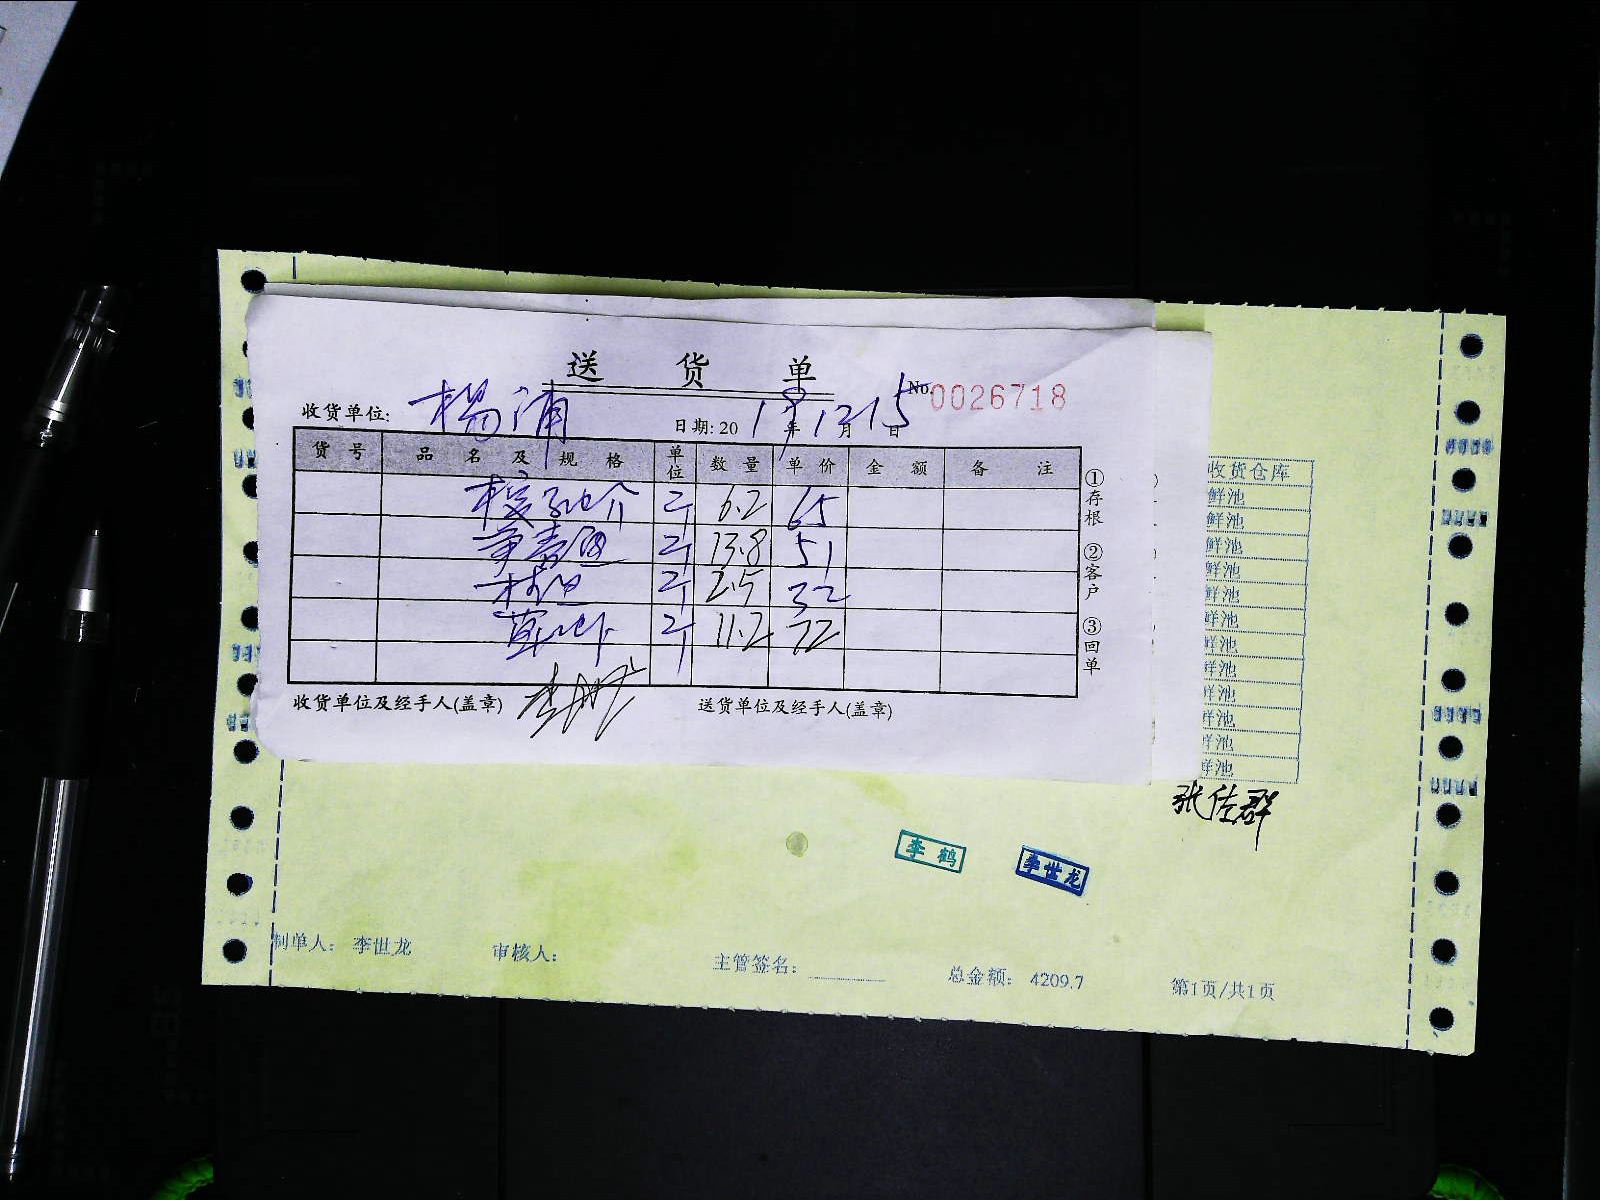 送 货 单
No. 0026718
收货单位: 杨浦
日期: 20 1 年 12 月 15 日
货 号 品 名 及 规 格 单位 数 量 单 价 金 额 备 注
斤 6.2 65
斤 13.8 51
斤 2.5 32
斤 11.2 72
①存根 ②客户 ③回单
收货单位及经手人(盖章)
送货单位及经手人(盖章)
收货仓库
鲜池
鲜池
鲜池
鲜池
鲜池
鲜池
鲜池
鲜池
鲜池
鲜池
鲜池
鲜池
张佐群
李鹤
李世龙
制单人: 李世龙 审核人: 主管签名: 总金额: 4209.7 第1页/共1页